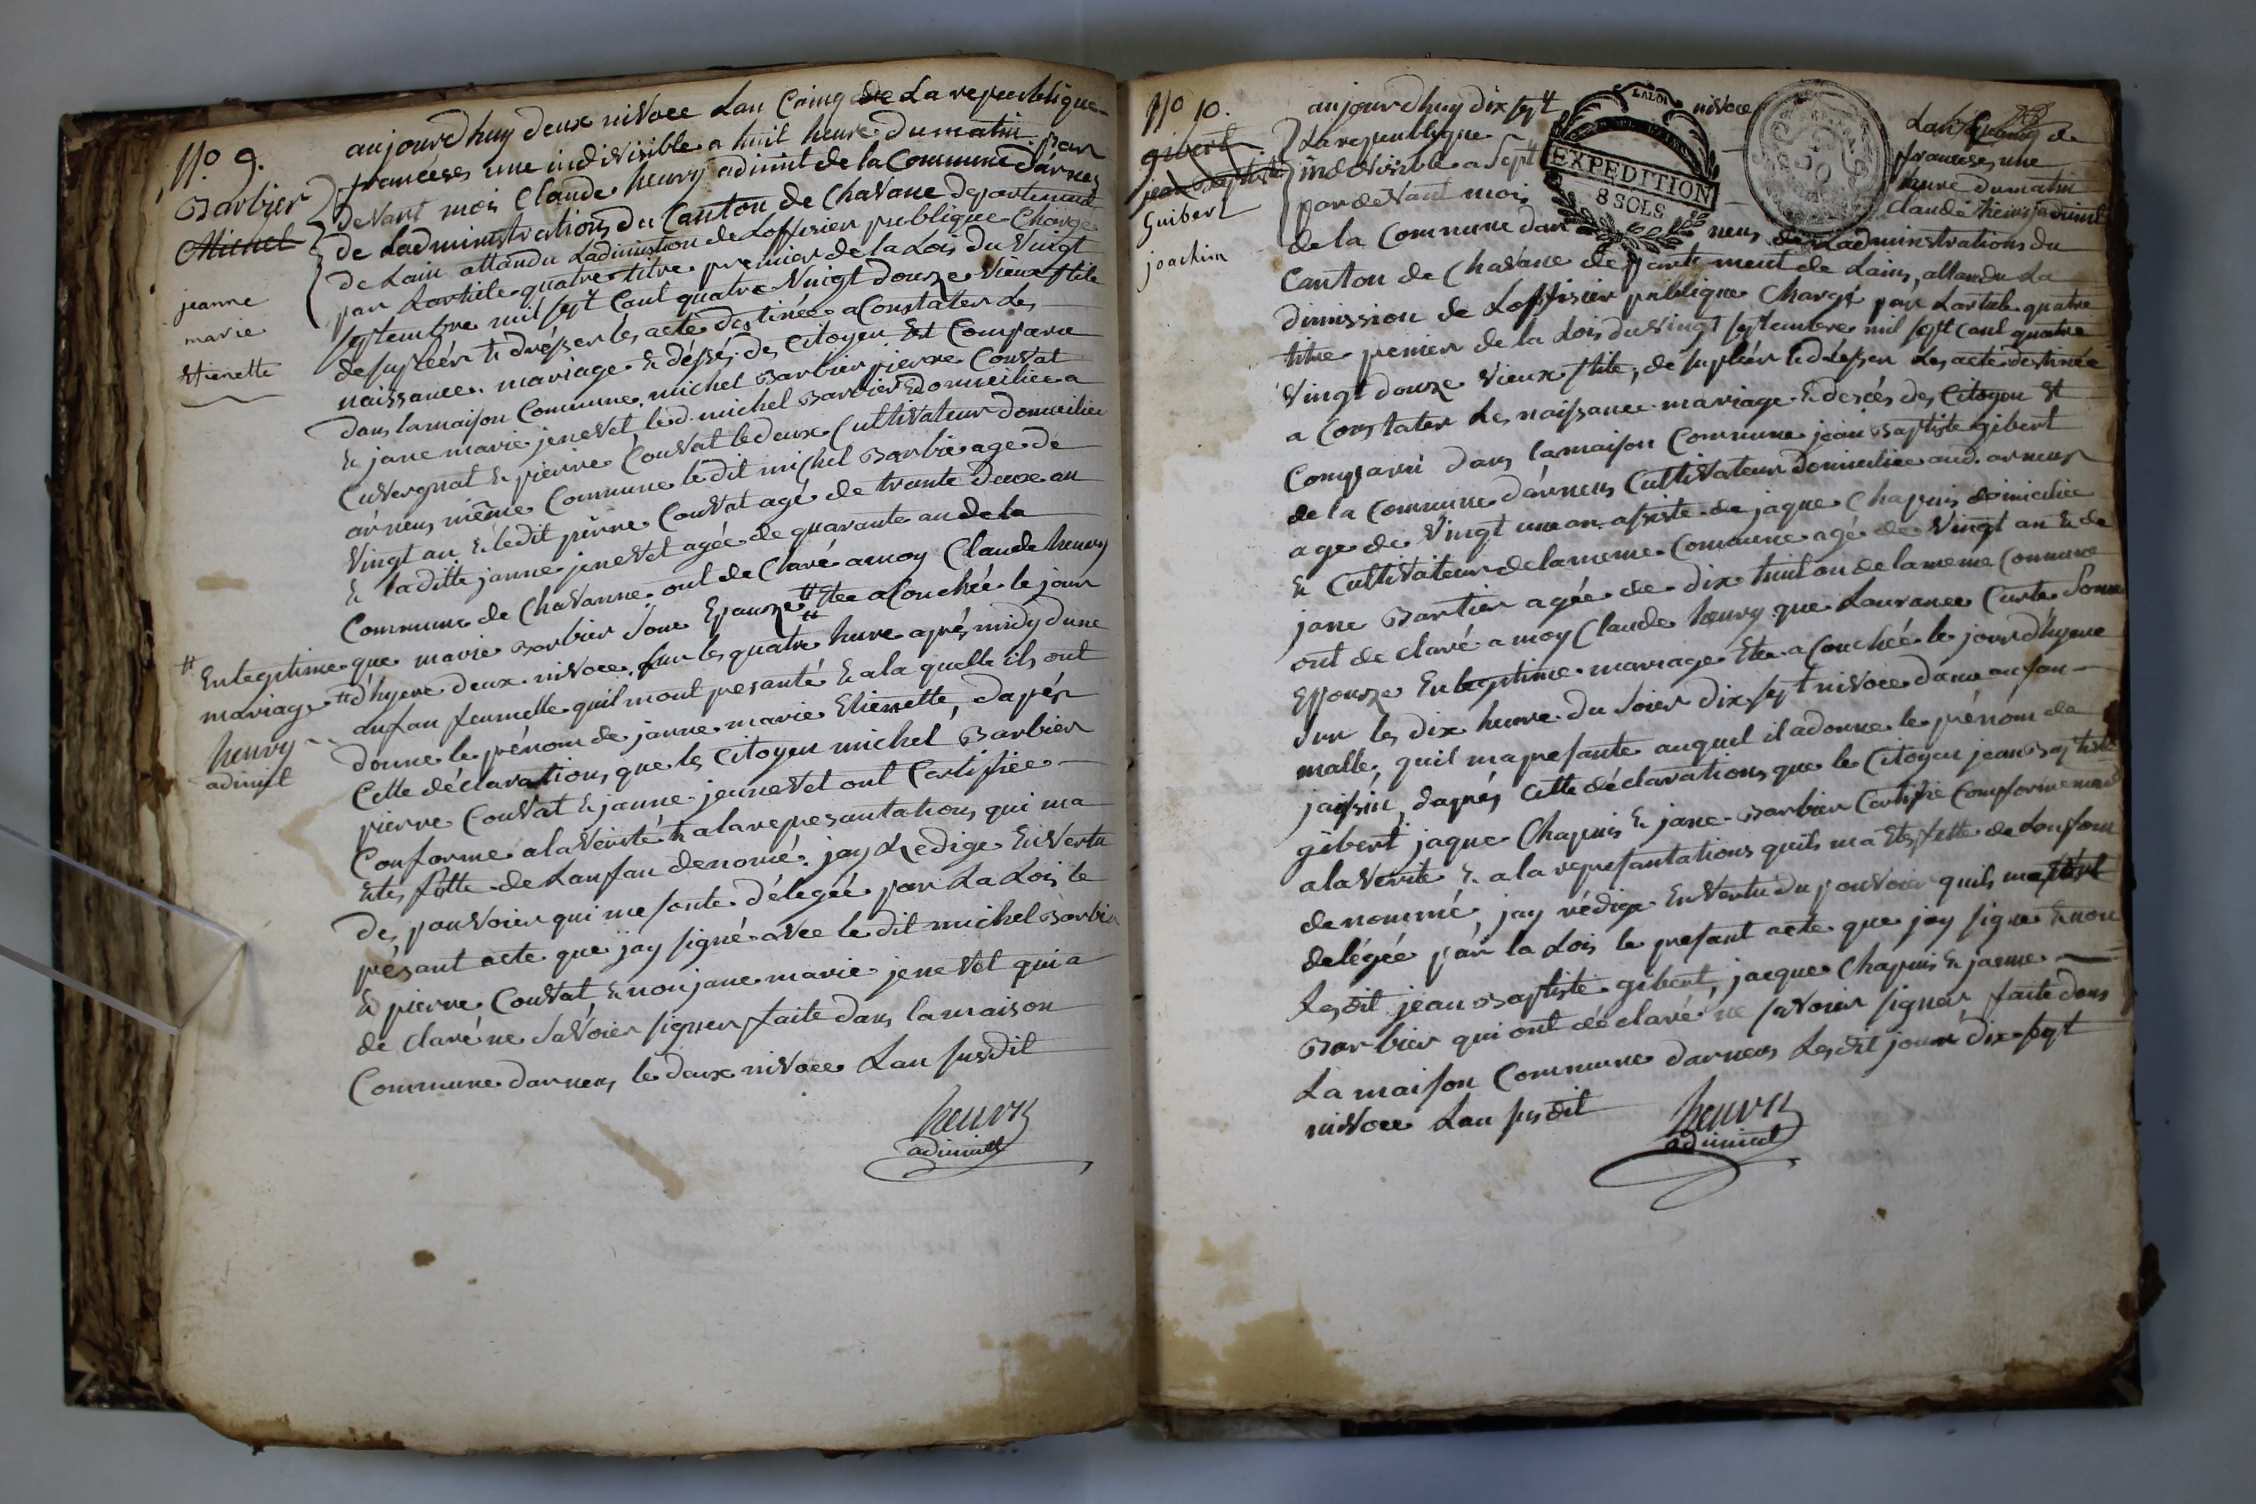 No 9.
Barbier
Michel
jeanne
marie
Etienette
aujourdhuy deux nivoce Lan Cainq de La republique
franceses une indévisible a huit heure du matin. Par
devant mois Claude heury adimit de la Commune d'arnens
de Ladministrations du Canton de Chavane departement
de Lain attandu Ladimistion de Loffisier publique Charge
par Lartitele quatre titre premier de la Lois du vingt
septembre mil sept Cant quatre vingt douze vieux stile
de supléér & drésser les acte destinée a Constater les
naissance. mariage & déssé. des Citoyen Est Comparu
dans la maison Commune. michel Barbier pierre Couvat
& jane marie jenevet led. michel Barbier domiciliee a
Cuvergnat & pierre Couvat le deux Cultivateur domicilie
arnens même Commune ledit michel Barbie age de
vingt an & ledit piérre Couvat agé de trante deux an
& laditte janne jenevet agée de quarante an de la
Commune de Chavanne ont de Claré a moy Claude heury
# En legitime que marie Barbier Sone Epouze # Ete a Couchée le jour
mariage # d'hyere deux nivoce. sur les quatre heure aprés midy dune
anfan feumelle quil mont presanté & a la quelle ils ont
heury
adimit
donne le prénom de janne marie Etienette, daprés
Cette déclarations, que les Citoyen michel Barbier
pierre Couvat & janne jennevet ont Cartifiee
Conforme a la vérité & a la represantations, qui ma
Etes fette de Lanfan denomé. jay Redige En vertu
des pouvoier qui me sonte délegée par La Lois le
présant acte que jay signé avec le dit michel Barbier
& pierre Couvat, & non jane marie jenevet qui a
de claré ne Savoier signer faite dans la maison
Commune darnens le deux nivoce Lan susdit
heury
adimit
No 10.
gibert
jean Baptiste
Guibert
joachim
aujourdhuy dix sept nivoce Lan
La republique franceses une
indevisible a Sept heure du matin
pardevant mois Claude heury adimit
EXPEDITION
8 SOLS
de la Commune dar nens de Ladministrations du
Canton de Chavane departement de Lains, attandu La
dimission de Loffisier publique Chargé par Lartiele quatre
titre premier de la Lois du vingt septembre mil sept Cant quatre
vingt douze vieux stile, de supléér & drésser Les acté destinée
a Constater Les naissance mariage & desés des Citoyen Et
Comparu dans la maison Commune jean Baptiste gibert
de la Commune d'arnens Cultivateur domiciliee aud. arnens
age de vingt une an assiste de jaque Chapuis domiciliee
& Cultivateur de la meme Commune agé de vingt an & de
jane Barbier agée de dix huit an de la meme Commune
ont de claré a moy Claude heury que Laurance Curte Sonne
Epouze En legitime mariage Ete a Couchée le jour d'hyere
Sur les dix heure du Soier dix sept nivoce dune anfan
malle, quil ma presante auquel il a donne le prénom de
, daprés Cette déclarations que le Citoyen jean Baptiste
gibert jaque Chapuis & jane Barbier Cartifie Comformement
a la verité & a la represantations quils ma Etes fette de Lonfan
denommé, jay rédige En vertu du pouvoier quils
delégée par la Lois le presant acte que jay signe & non
Lesdit jean Baptiste gibert, jacque Chapuis & janne
Barbier qui ont déclaré ne savoier signér, faite dans
La maison Commune darnens Lesdit jour dix sept
nivoce Lan susdit
heury
adimit